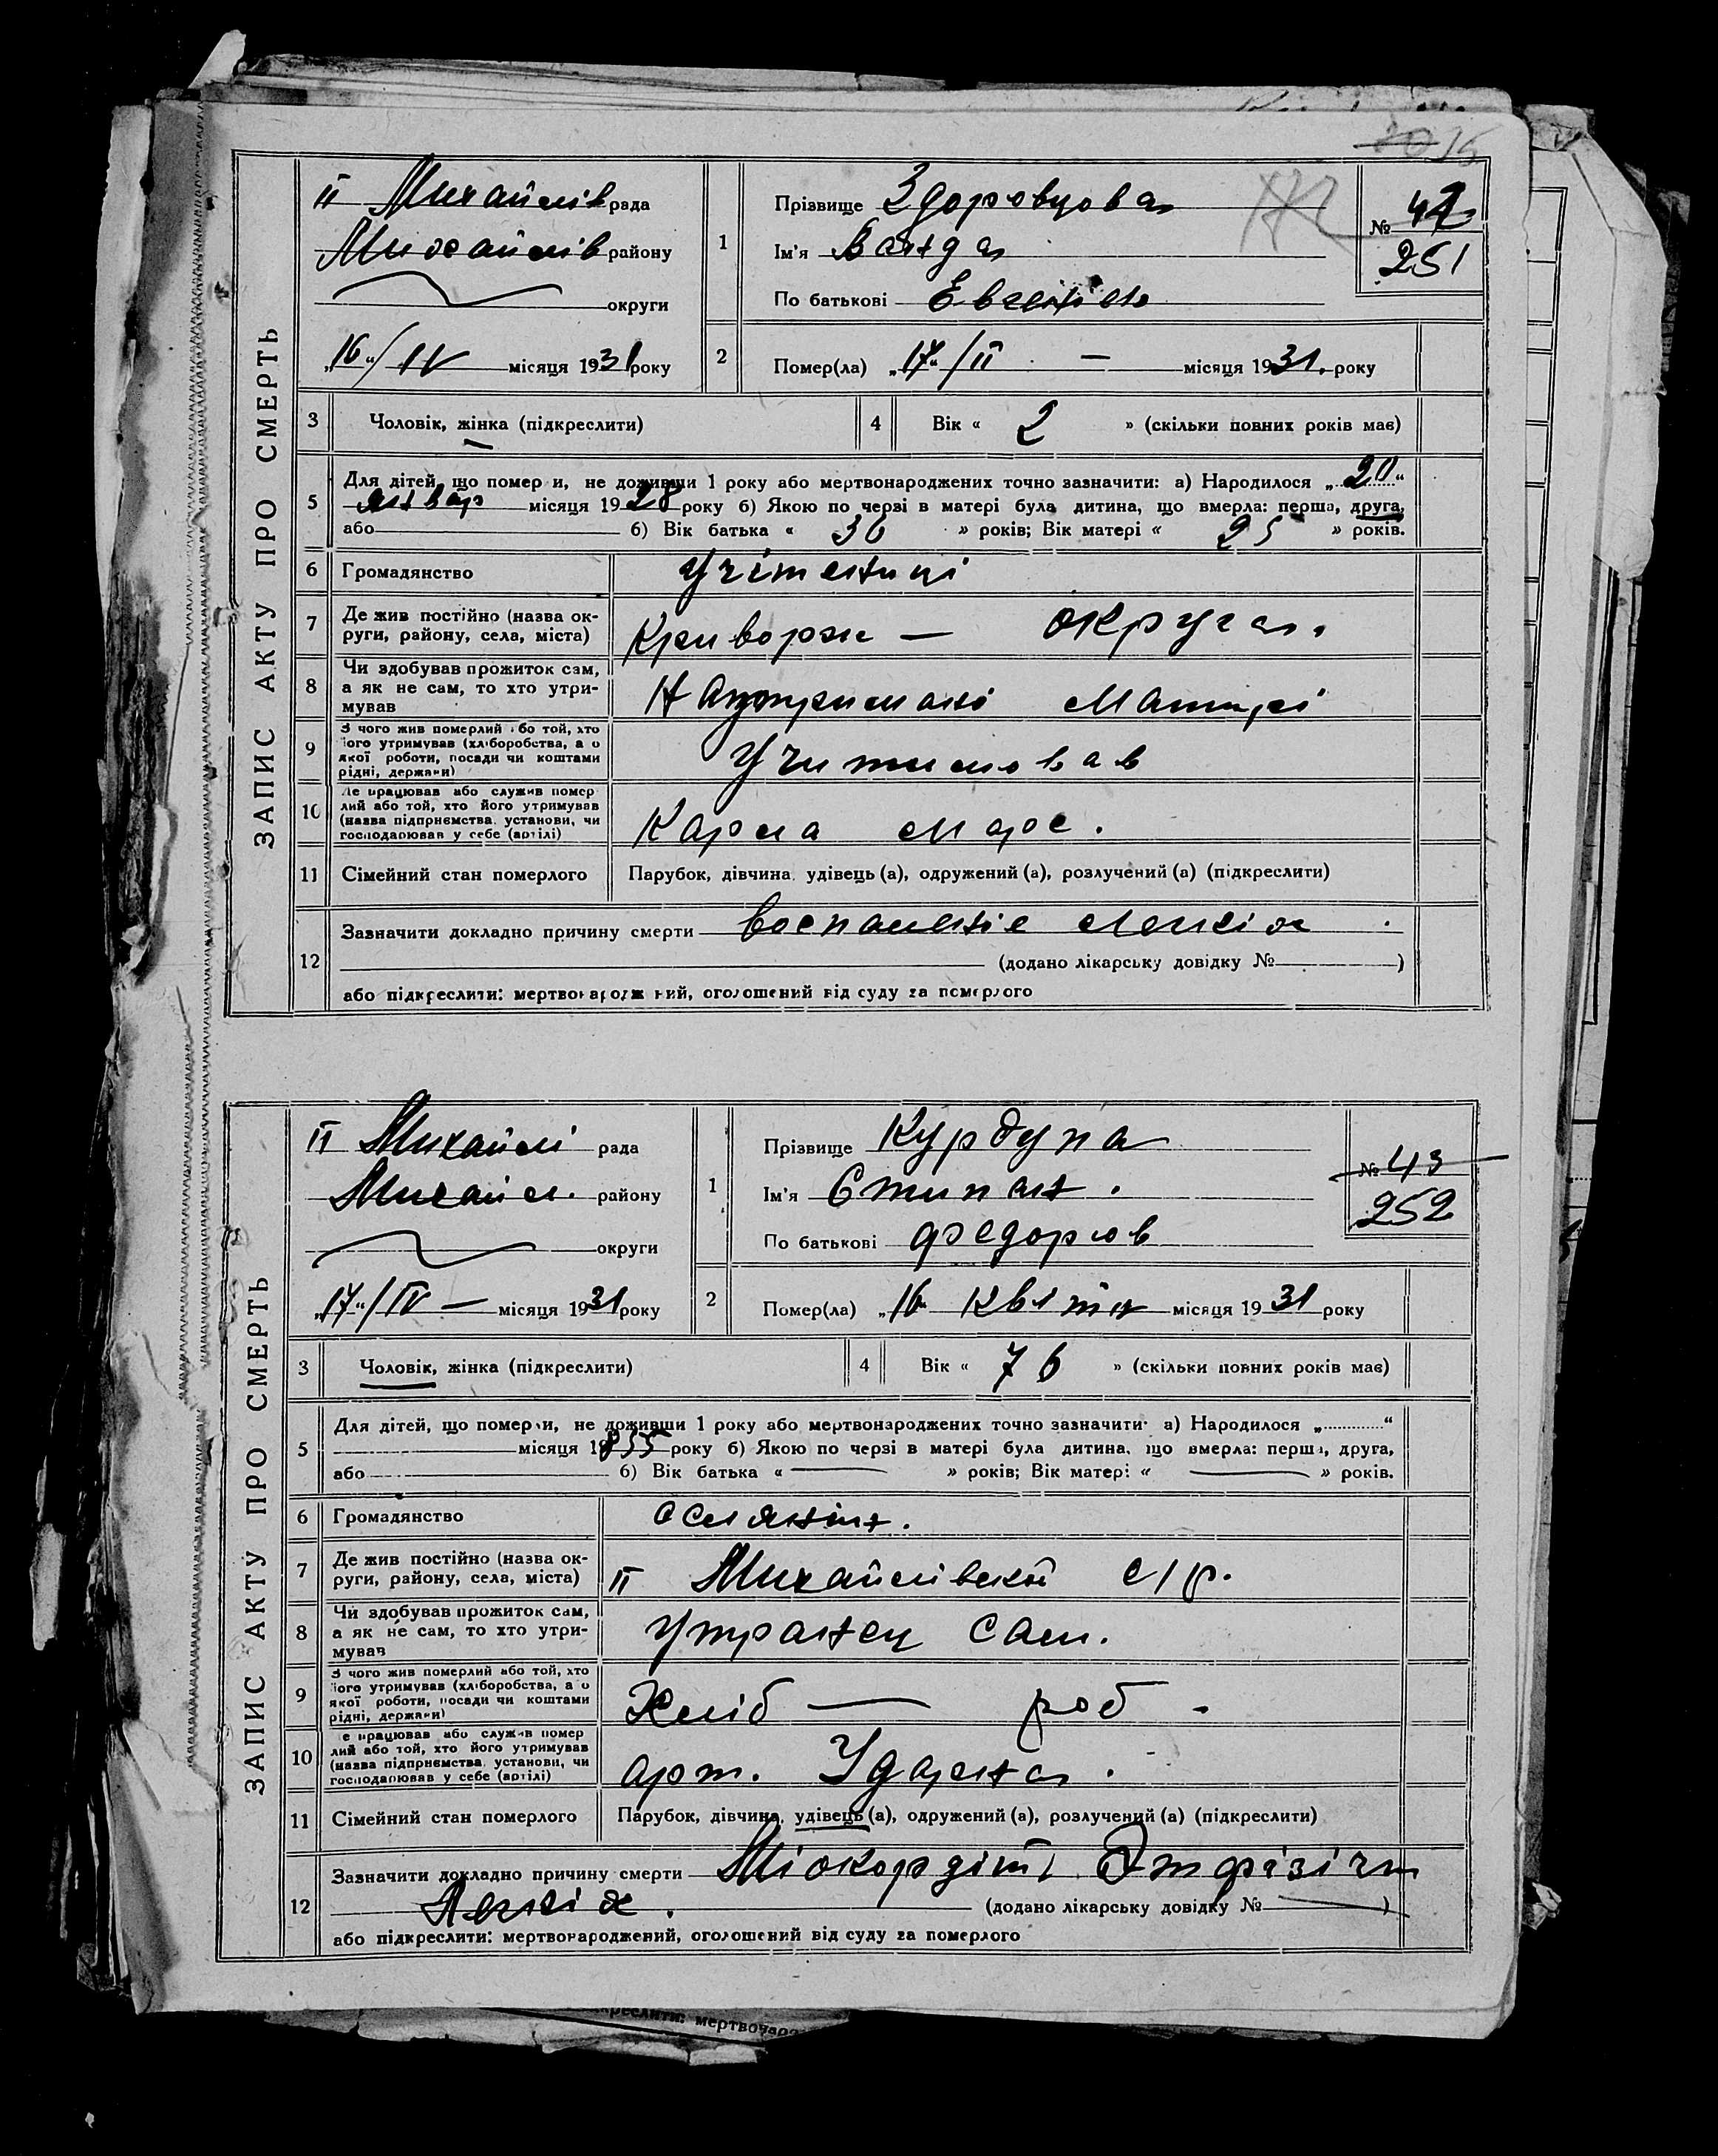 16
ЗАПИС АКТУ ПРО СМЕРТЬ
ІІ Михайлів рада
Михайлів району
округи
„16“/IV місяця 1931 року
1
Прізвище Здоровцова
Ім'я Ванда
По батькові Евгенієв
№ 42
251
2
Помер(ла) „17“/ІІ — місяця 1931. року
3 Чоловік, жінка (підкреслити)
4 Вік « 2 » (скільки повних років має)
5 Для дітей, що померли, не доживши 1 року або мертвонароджених точно зазначити: а) Народилося „20“
январ місяця 1928 року б) Якою по черзі в матері була дитина, що вмерла: перша, друга,
або б) Вік батька « 30 » років; Вік матері « 25 » років.
6 Громадянство Учітельниці
7 Де жив постійно (назва ок-
руги, району, села, міста) Криворж — округа.
8 Чи здобував прожиток сам,
а як не сам, то хто утри-
мував На утримані Матері
9 З чого жив померлий або той, хто
його утримував (хліборобства, або
якої роботи, посади чи коштами
рідні, держави) Учителював
10 Де працював або служив помер
лий або той, хто його утримував
(назва підприємства, установи, чи
господарював у себе (артілі) Карла Маре.
11 Сімейний стан померлого Парубок, дівчина, удівець (а), одружений (а), розлучений (а) (підкреслити)
12 Зазначити докладно причину смерти воспаленіе легкіх
(додано лікарську довідку № )
або підкреслити: мертвонароджений, оголошений від суду за померлого
ЗАПИС АКТУ ПРО СМЕРТЬ
ІІ Михайлі рада
Михайл. району
округи
„17“/IV — місяця 1931 року
1
Прізвище Курдупа
Ім'я Стипан.
По батькові Федоров
№ 43
252
2
Помер(ла) „16 Квітн місяця 1931 року
3 Чоловік, жінка (підкреслити)
4 Вік « 76 » (скільки повних років має)
5 Для дітей, що померли, не доживши 1 року або мертвонароджених точно зазначити: а) Народилося „ “
місяця 1855 року б) Якою по черзі в матері була дитина, що вмерла: перша, друга,
або б) Вік батька « — » років; Вік матері « — » років.
6 Громадянство селянин.
7 Де жив постійно (назва ок-
руги, району, села, міста) ІІ Михайлівской с/р.
8 Чи здобував прожиток сам,
а як не сам, то хто утри-
мував Сам.
9 З чого жив померлий або той, хто
його утримував (хліборобства, або
якої роботи, посади чи коштами
рідні, держави) Хліб — роб.
10 Де працював або служив помер
лий або той, хто його утримував
(назва підприємства, установи, чи
господарював у себе (артілі) арт. Ударна.
11 Сімейний стан померлого Парубок, дівчина, удівець (а), одружений (а), розлучений (а) (підкреслити)
12 Зазначити докладно причину смерти Міокардіт
Легкіх. (додано лікарську довідку № — )
або підкреслити: мертвонароджений, оголошений від суду за померлого